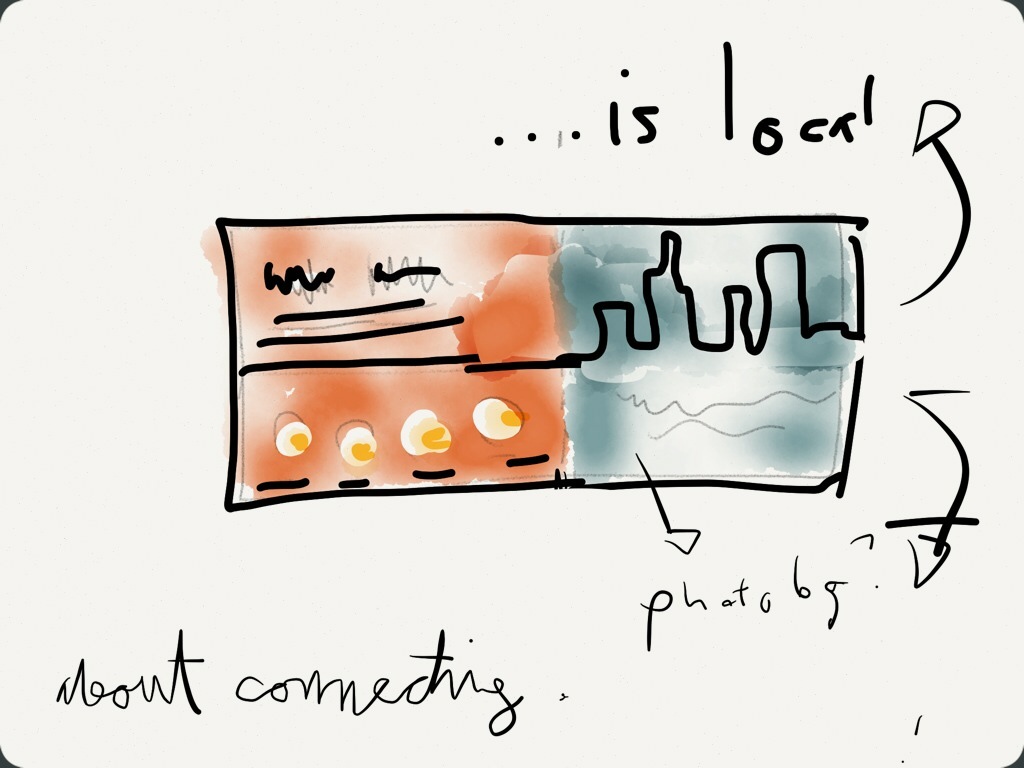 ....is local
photo bg?
about connecting.